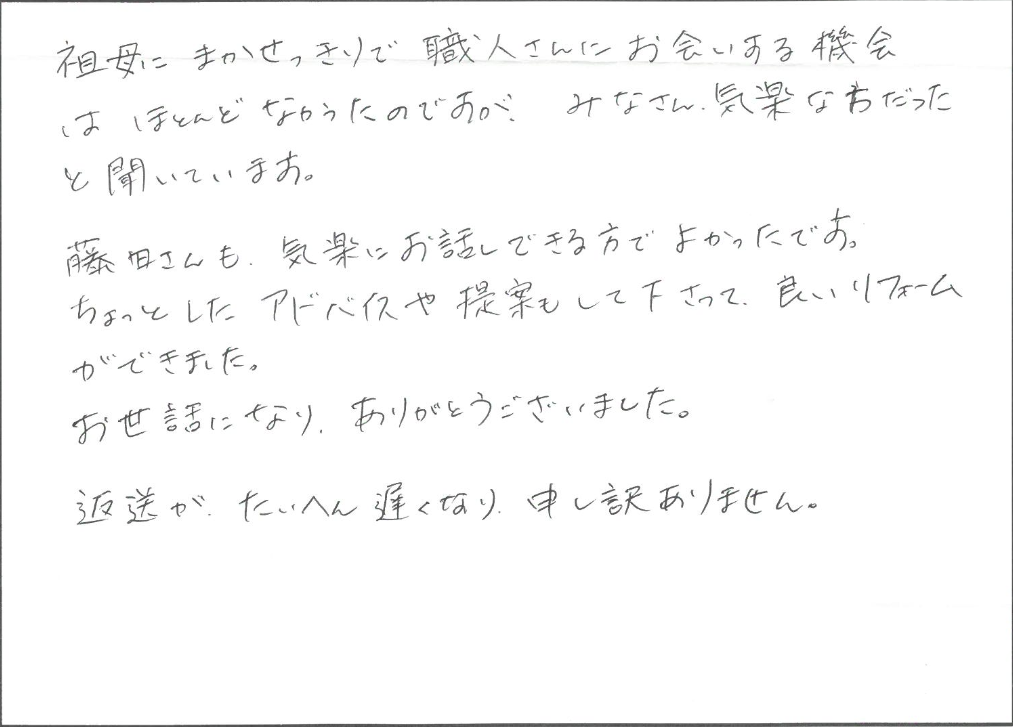 祖母にまかせっきりで職人さんにお会いする機会
はほとんどなかったのですが、みなさん、気楽な方だった
と聞いています。
藤田さんも、気楽にお話しできる方でよかったです。
ちょっとしたアドバイスや提案もして下さって、良いリフォーム
ができました。
お世話になり、ありがとうございました。
返送が、たいへん遅くなり、申し訳ありません。